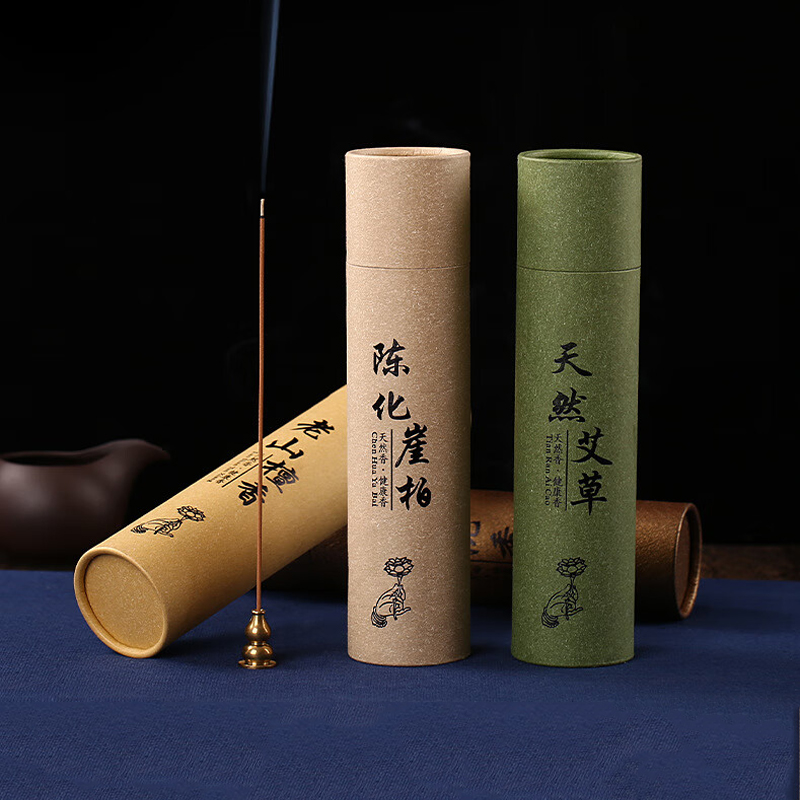 老山檀香
陈化崖柏
天然香·健康香
Chen Hua Ya Bai
天然艾草
天然香·健康香
Tian Ran Ai Cao
香